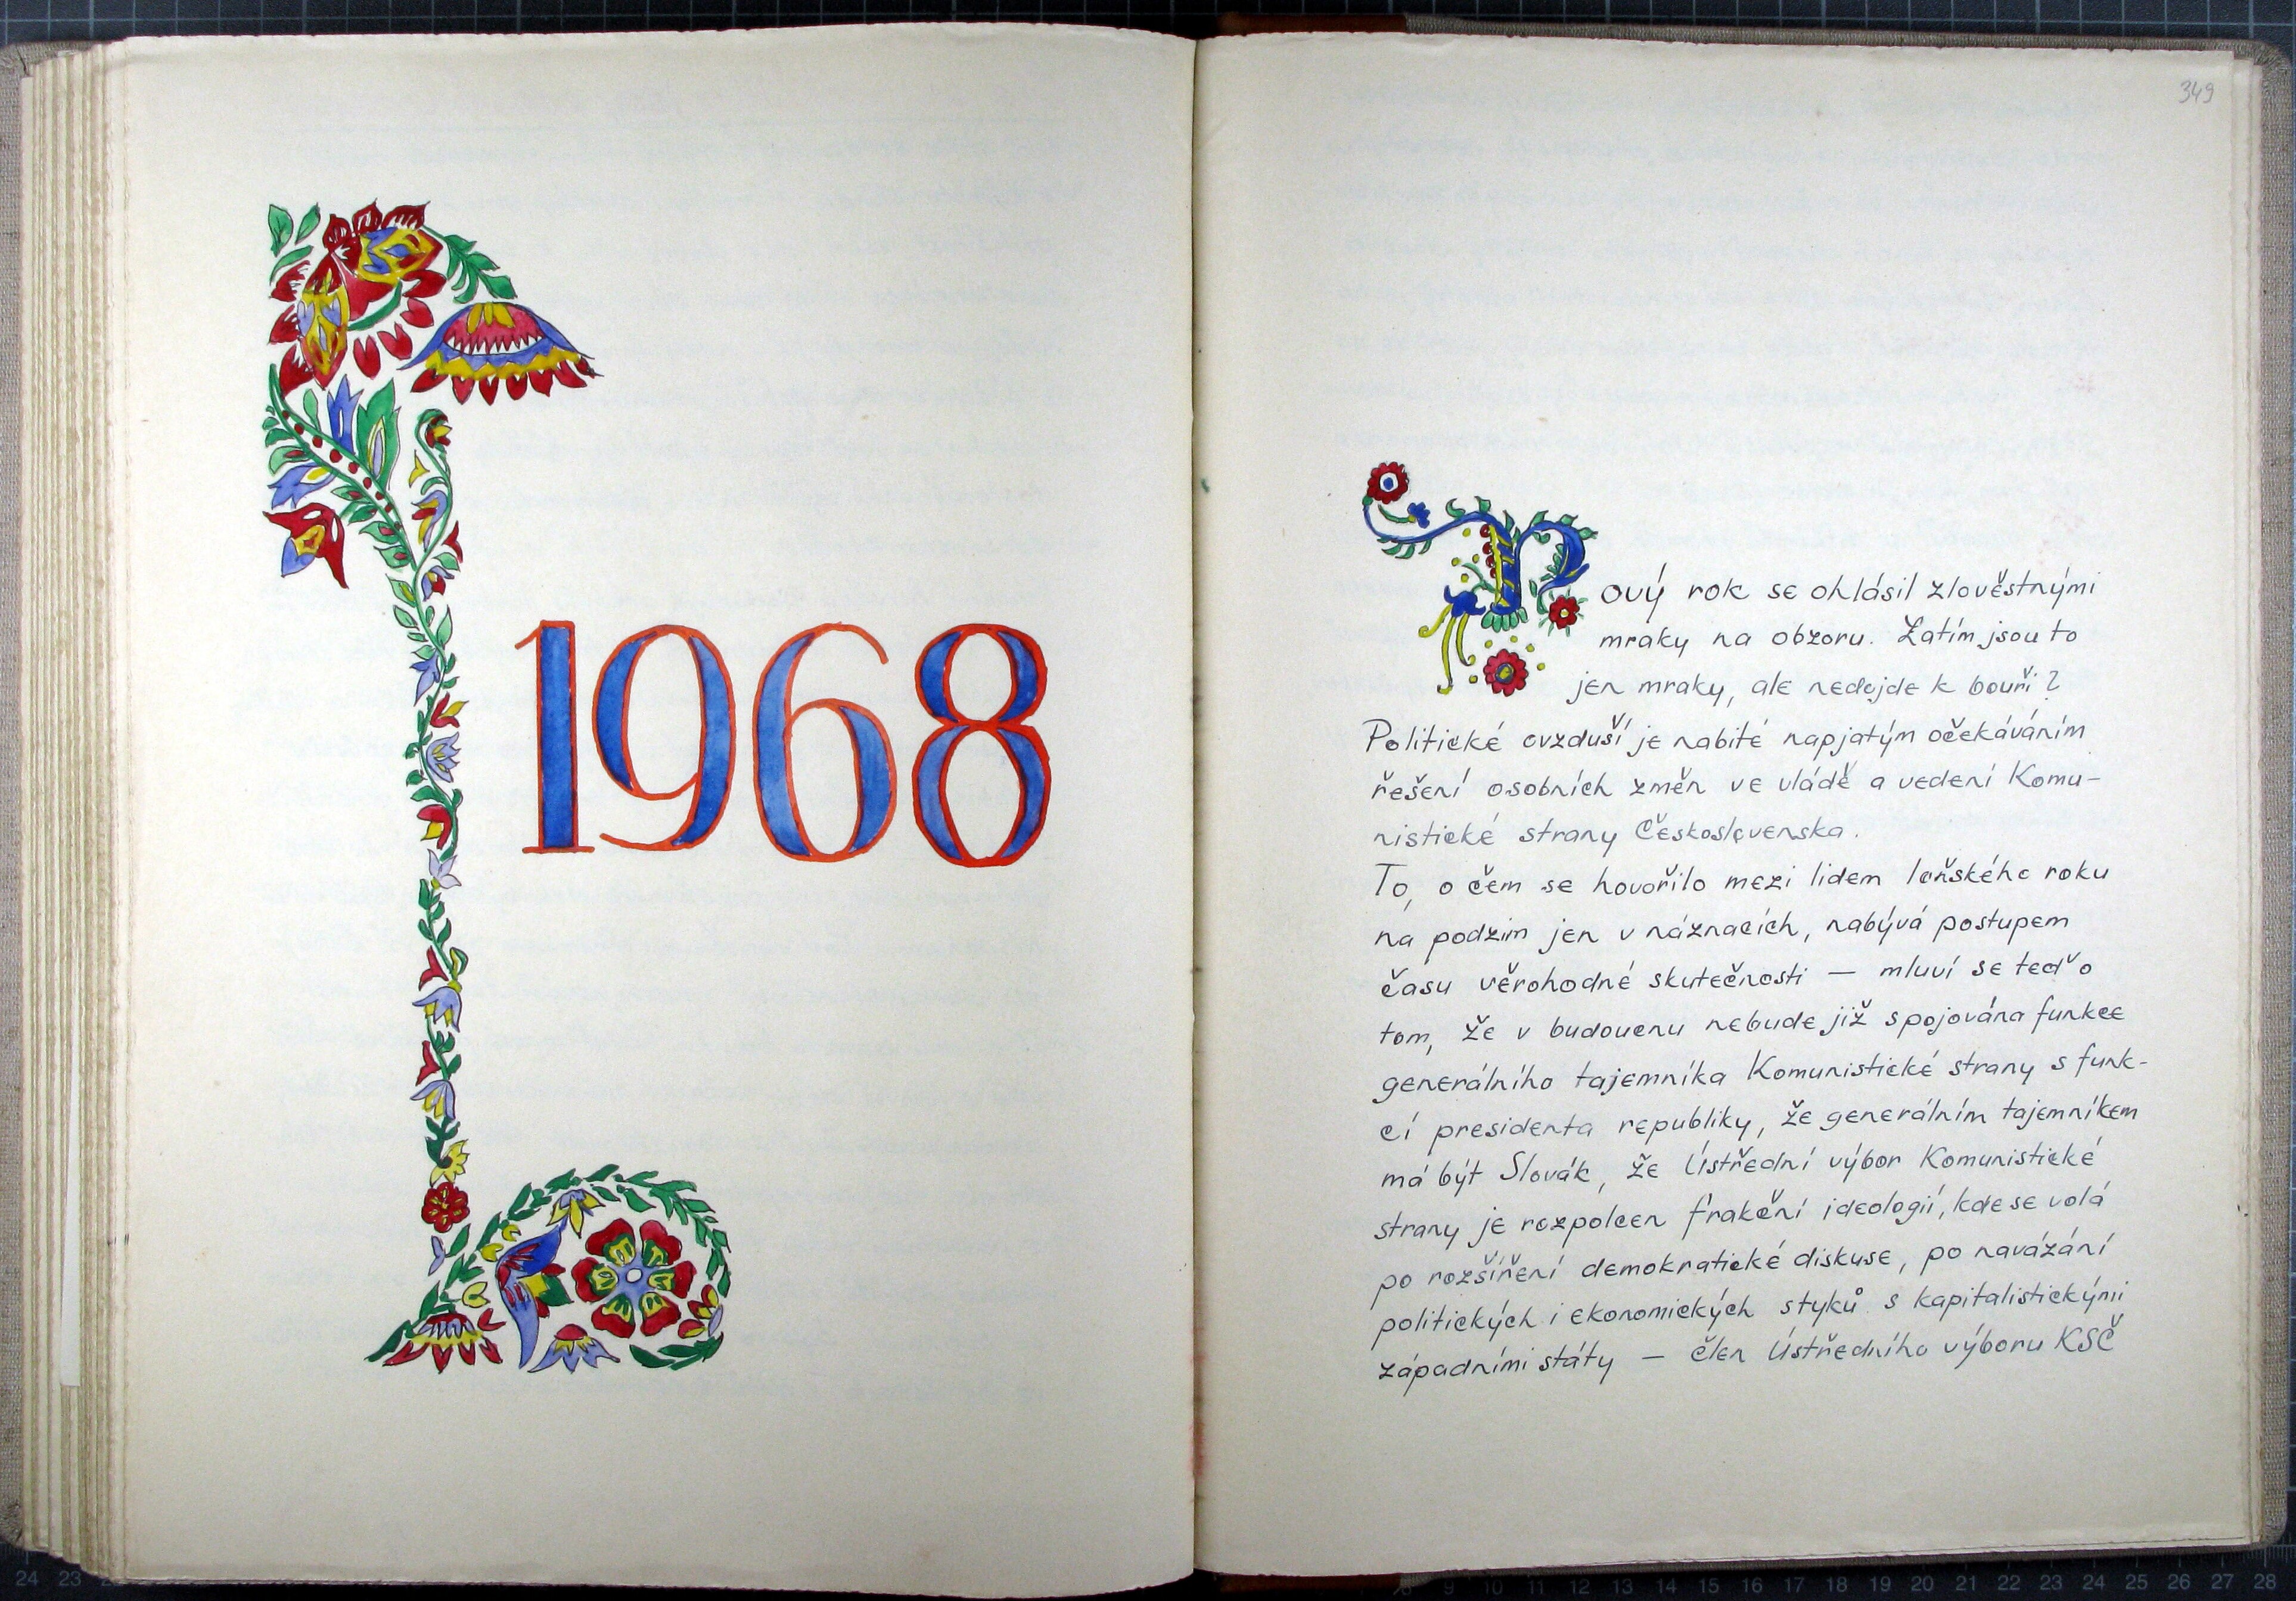 1968
349
Nový rok se ohlásil zlověstnými
mraky na obzoru. Zatím jsou to
jen mraky, ale nedojde k bouři?
Politické ovzduší je nabité napjatým očekáváním
řešení osobních změn ve vládě a vedení Komu-
nistické strany Československa.
To, o čem se hovořilo mezi lidem loňského roku
na podzim jen v náznacích, nabývá postupem
času věrohodné skutečnosti — mluví se teď o
tom, že v budoucnu nebude již spojována funkce
generálního tajemníka Komunistické strany s funk-
cí presidenta republiky, že generálním tajemníkem
má být Slovák, že Ústřední výbor Komunistické
strany je rozpolcen frakční ideologií, kde se volá
po rozšíření demokratické diskuse, po navázání
politických i ekonomických styků s kapitalistickými
západními státy — člen Ústředního výboru KSČ
24 23
8 9 10 11 12 13 14 15 16 17 18 19 20 21 22 23 24 25 26 27 28